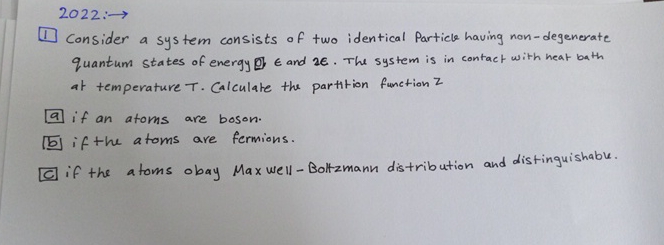 2022:→
1 Consider a system consists of two identical Particle having non-degenerate
quantum states of energy 0, ε and 2ε. The system is in contact with heat bath
at temperature T. Calculate the partition function Z
a if an atoms are boson.
b if the atoms are fermions.
c if the atoms obay Maxwell-Boltzmann distribution and distinguishable.